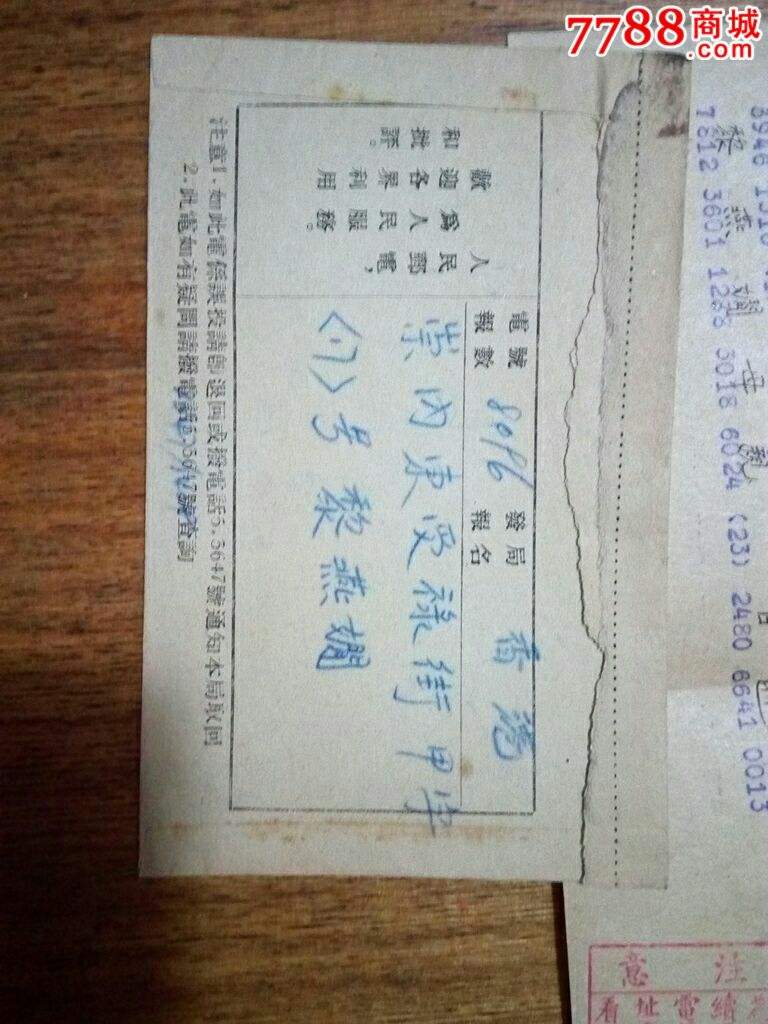 7788商城
.com
人民郵電，
爲人民服務。
歡迎各界利用
和批評。
電報號數 8096 發報局名 香港
崇內東受祿街甲字
号 黎燕嫻
注意1.如此電係誤投請即退回或撥電話5.5647號通知本局取回
2.此電如有疑問請撥電話5.5647號查詢
3946
黎燕嫻母親
7812 3601 1288 3018 6024 (23) 2480 6641 0013
注意
續電址看